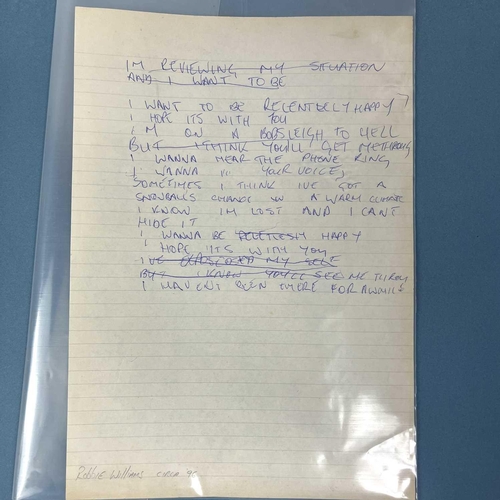 IM REVIEWING MY SITUATION
AND I WANT TO BE
I WANT TO BE RELENTELLY HAPPY
I HOPE ITS WITH YOU
I'M ON A BOBSLEIGH TO HELL
BUT I THINK YOU'LL GET ME THROUG
I WANNA HEAR THE PHONE RING
I WANNA " YOUR VOICE,
SOMETIMES I THINK IVE GOT A
SNOWBALLS CHANCE IN A WARM CLIMATE
I KNOW IM LOST AND I CANT
HIDE IT
I WANNA BE HAPPY
I HOPE ITS WITH YOU
I'VE MY SELF
BUT I KNOW YOU'LL SEE ME THROU
I HAVENT BEEN THERE FOR AWHILE
Robbie Williams circa